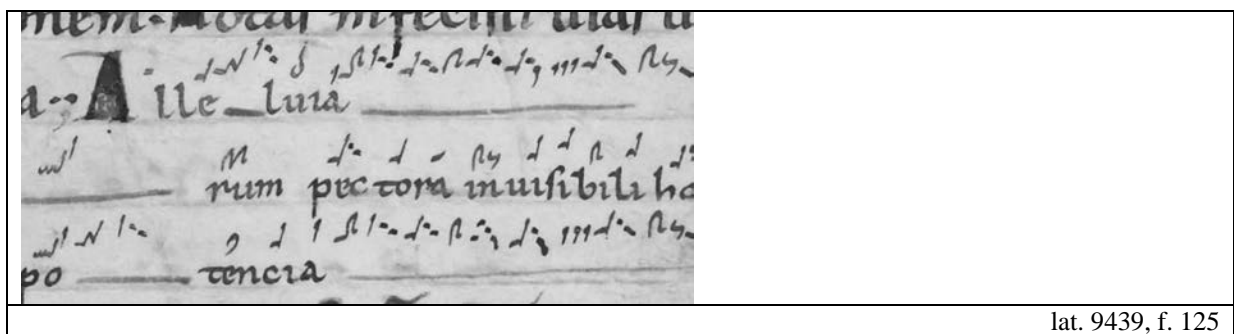 a. Alleluia
rum pectora inuisibili
po tencia
lat. 9439, f. 125